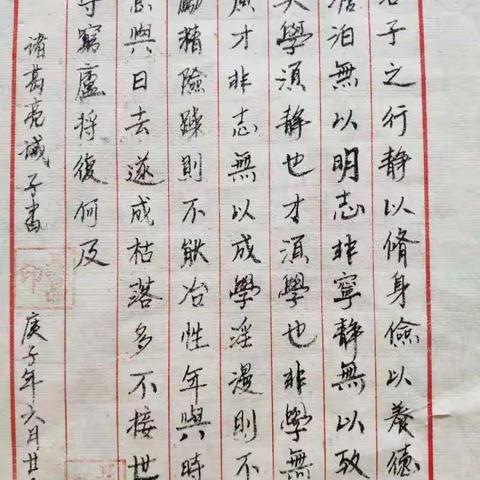 子之行静以脩身儉以養德
泊無以明志非寧静無以致
夫學須静也才須學也非學無
廣才非志無以成學淫漫則不
勵精險躁則不能冶性年與時
意與日去遂成枯落多不接世
守窮廬将復何及
諸葛亮誡子書
庚子年六月廿